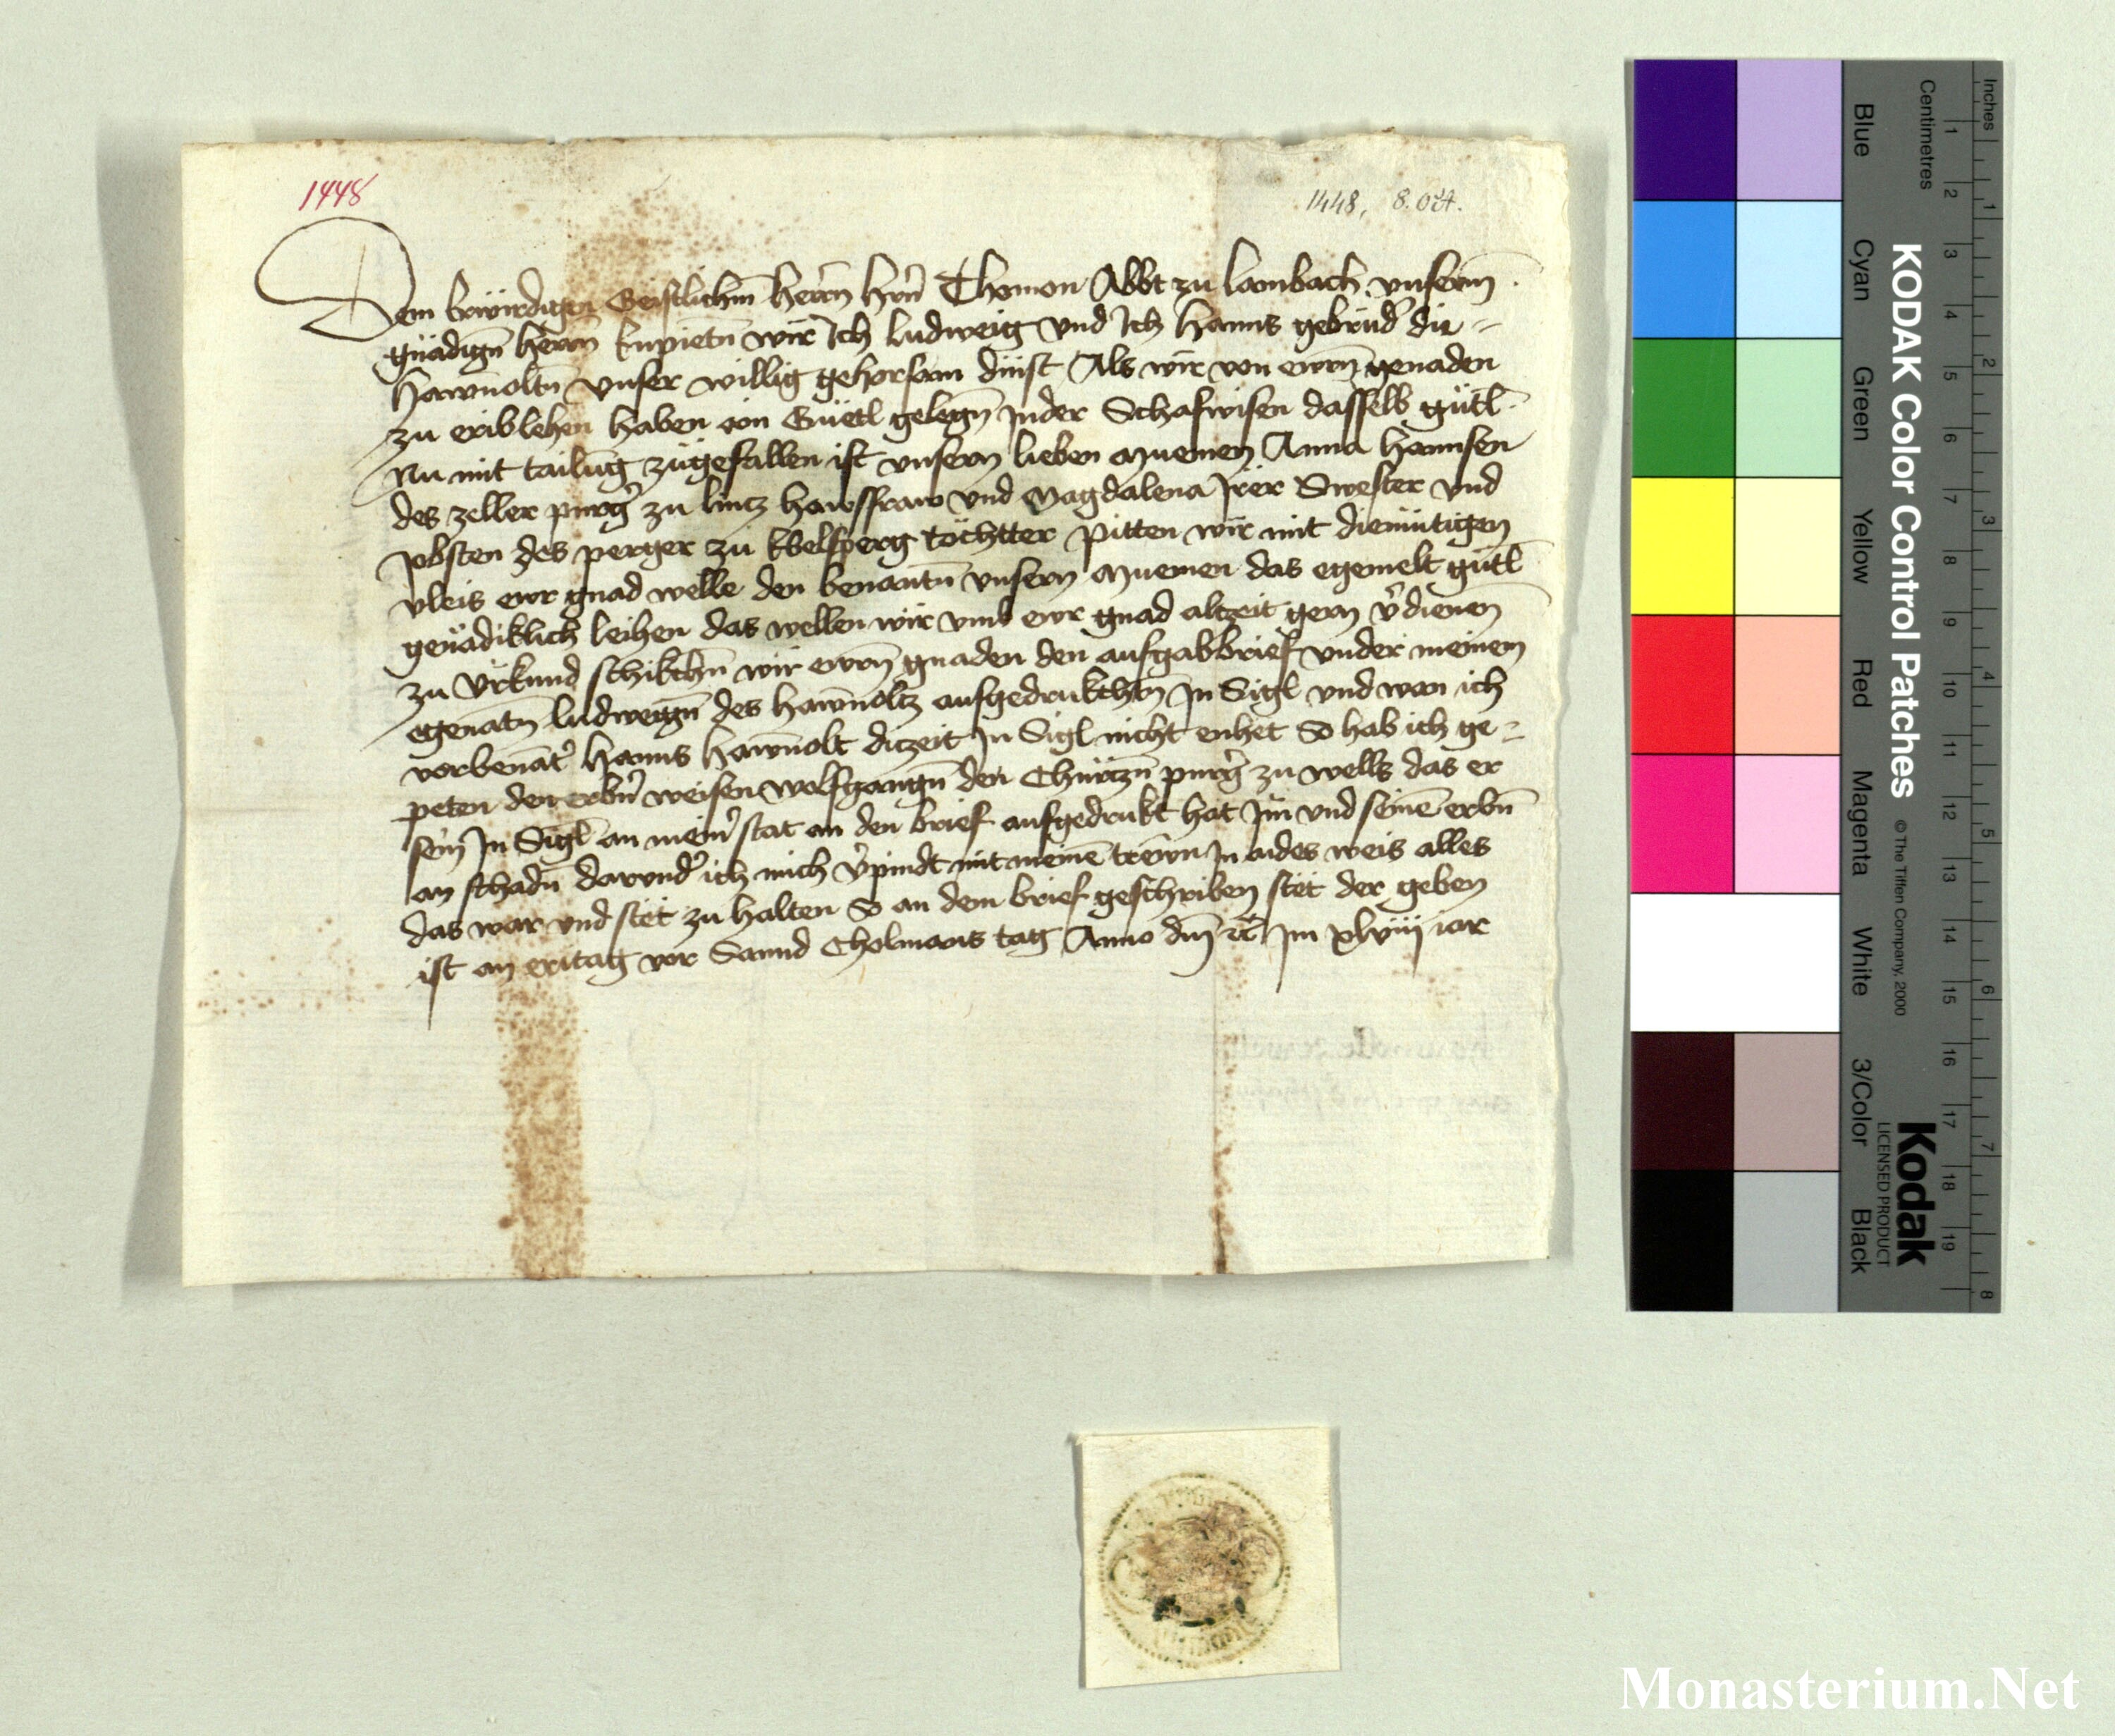 1448
1448, 8. Oct.
Dem Erwirdigen Geistlichen herrn hrn Thoman Abbt zu Lambach unserm
gnädign herrn Enpietn wir Ich Ludweig vnd Ich Hanns gebrüder die
Hawnoltn vnser willig gehorsam dinst Als wir von ewrn genaden
zu eriblehen haben ain Güetl gelegn Inder Schafwisen dasselb gütl
Nu mit tailung zügefallen ist vnsern lieben Muemen Anna Hannsen
des zeller purger zu lintz hawsfraw vnd Magdalena Irer Swester vnd
Jobsten des perger zu Welsperg töchtter Pitten wir mit diemütigen
vleis ewr gnad welle den benantn vnsern Muemen das egemelt gütl
genädiklich leihen das wellen wir vmb ewr gnad altzeit gern verdienen
zu Vrkund schikchn wir ewrn gnaden den aufgabbrief vnder meinem
egenatn Ludweign des Hawnoltz aufgedrukchtn In Sigl vnd wan ich
vorbenater Hanns Hawnolt dizeit In Sigl nicht enhet So hab ich ge=
peten den erbern weisen Wolfgangn den Chürtzn purger zu wells das er
sein In Sigl an meiner stat an den brief aufgedrukt hat Im vnd seinen erbn
an schadn darvnder ich mich verpindt mit meinen trewn In aides weis alles
das war vnd stet zu halten So an dem brief geschriben stet der geben
ist an eritag vor Sannd Cholmans tag Anno dm etc Im xlviii iar
Inches
Centimetres
KODAK Color Control Patches
© The Tiffen Company, 2000
Kodak
LICENSED PRODUCT
Blue
Cyan
Green
Yellow
Red
Magenta
White
3/Color
Black
1 2 3 4 5 6 7 8 9 10 11 12 13 14 15 16 17 18 19
1 2 3 4 5 6 7 8
Monasterium.Net